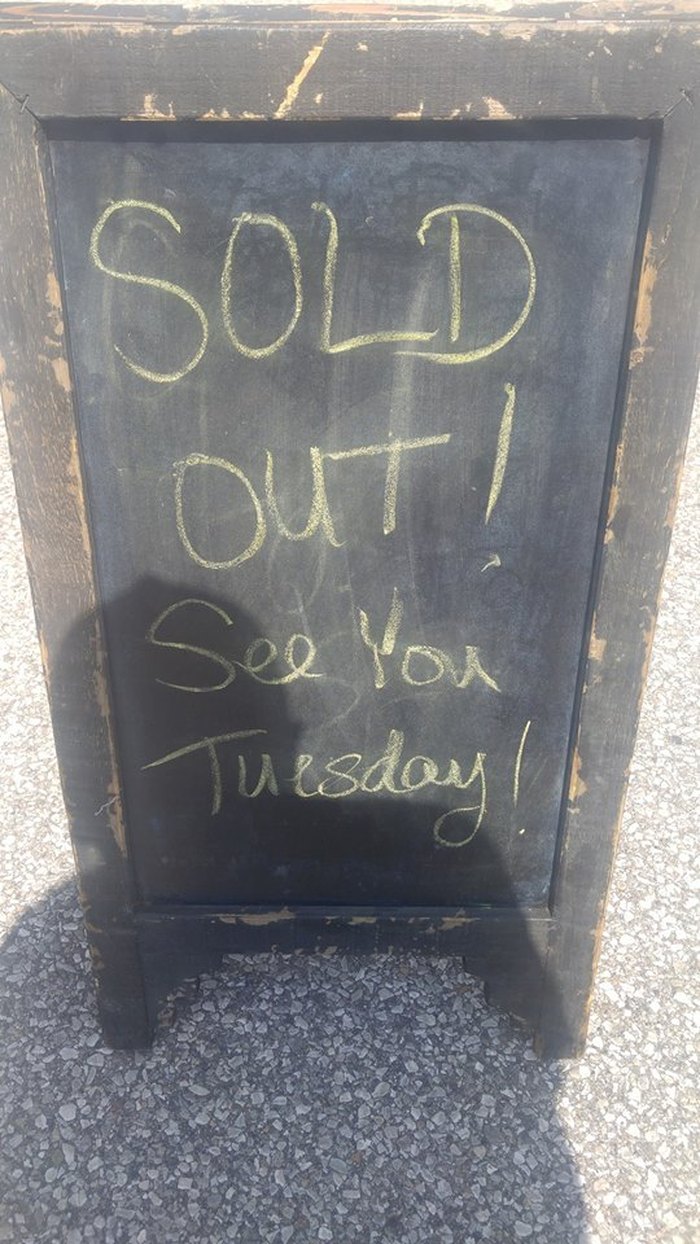 SOLD
OUT!
See You
Tuesday!